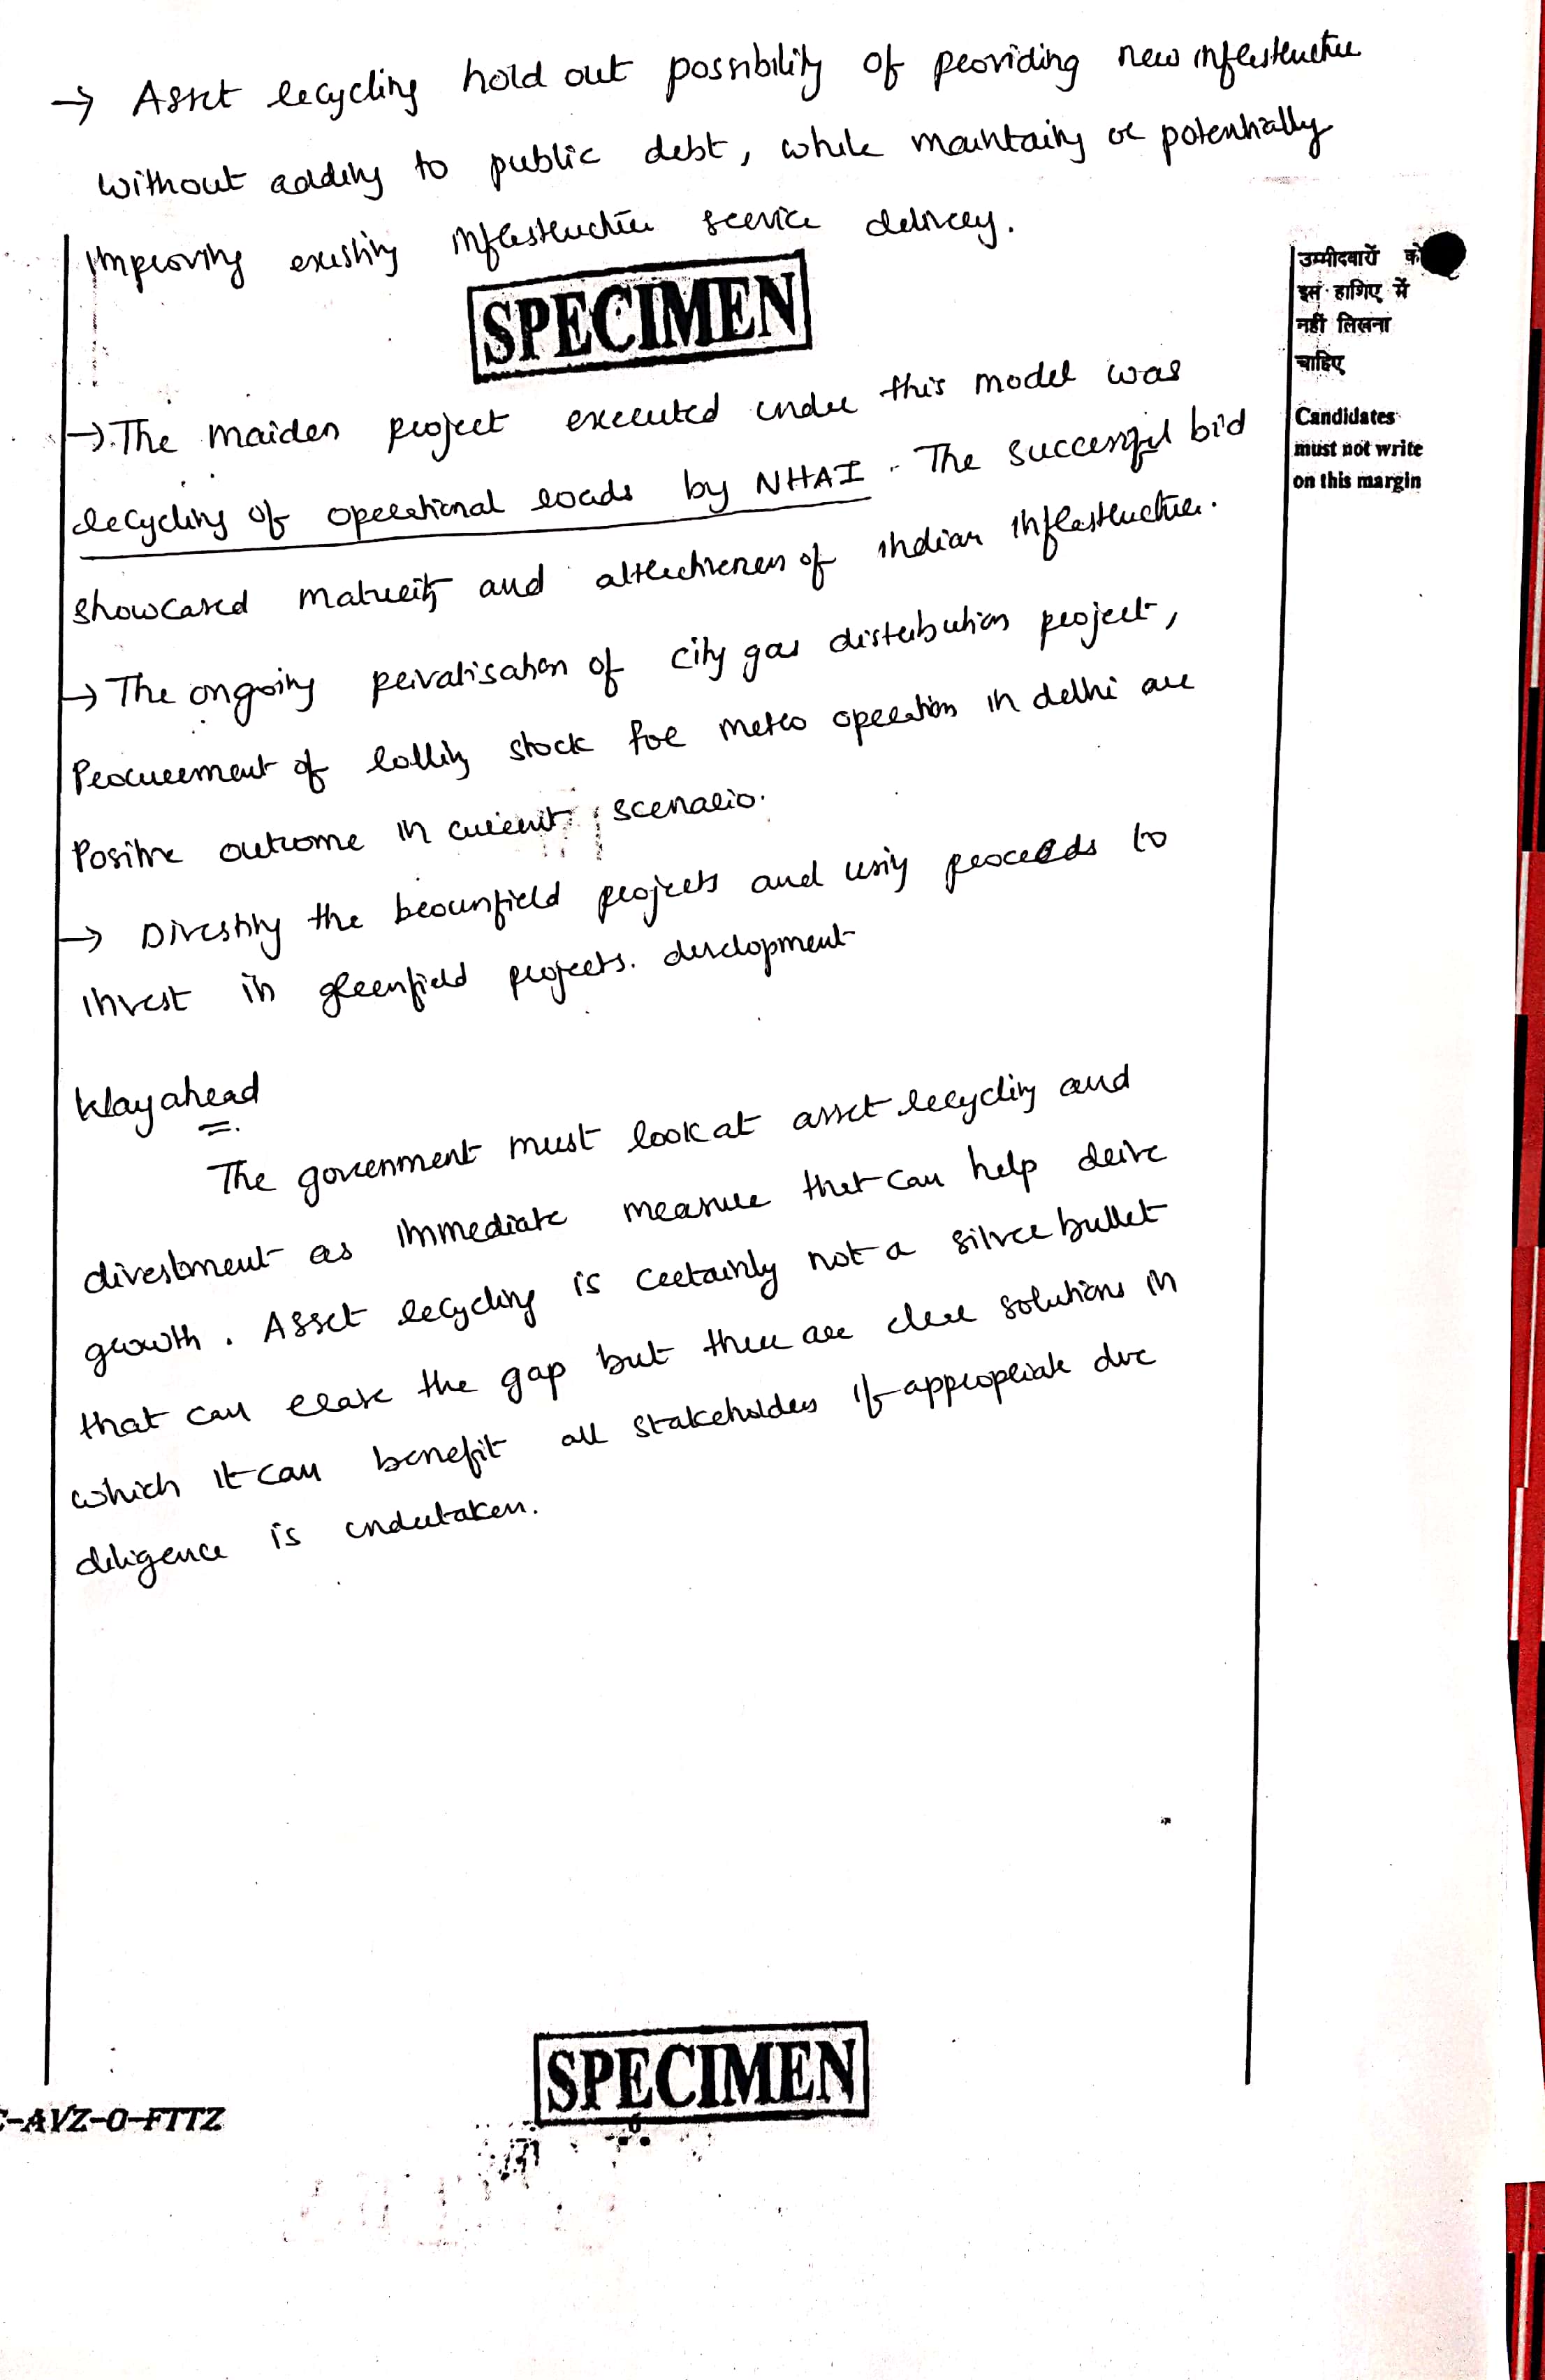 → Asset recycling hold out possibility of providing new infrastructure
without adding to public debt, while maintaing or potentially
improving existing infrastructure service delivery.
SPECIMEN
उम्मीदवारों को
इस हाशिए में
नहीं लिखना
चाहिए
Candidates
must not write
on this margin
→ The maiden project executed under this model was
recycling of operational roads by NHAI. The successful bid
showcased maturity and attractiveness of indian infrastructure.
→ The ongoing privatisation of city gas distribution project,
Procurement of rolling stock for metro operation in delhi are
Positive outcome in current scenario.
→ Divesting the brownfield projects and using proceeds to
invest in greenfield projects. development
Way ahead
The government must look at asset recycling and
divestment as immediate measure that can help drive
growth. Asset recycling is certainly not a silver bullet
that can erase the gap but there are clear solutions in
which it can benefit all stakeholders if appropriate due
diligence is undertaken.
SPECIMEN
-AVZ-O-FTTZ
6